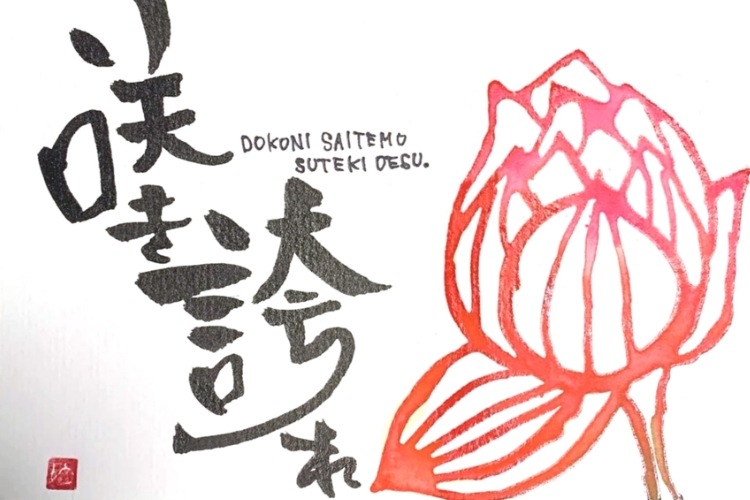 咲き誇れ
DOKONI SAITEMO
SUTEKI DESU.